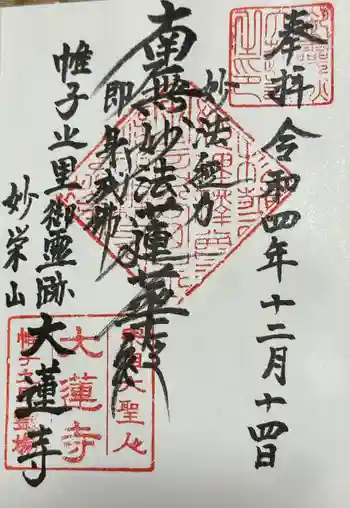 奉拝
令和四年十二月十四日
妙法経力
南無妙法蓮華経
即身成佛
帷子之里御霊跡
妙栄山
大蓮寺
大蓮寺